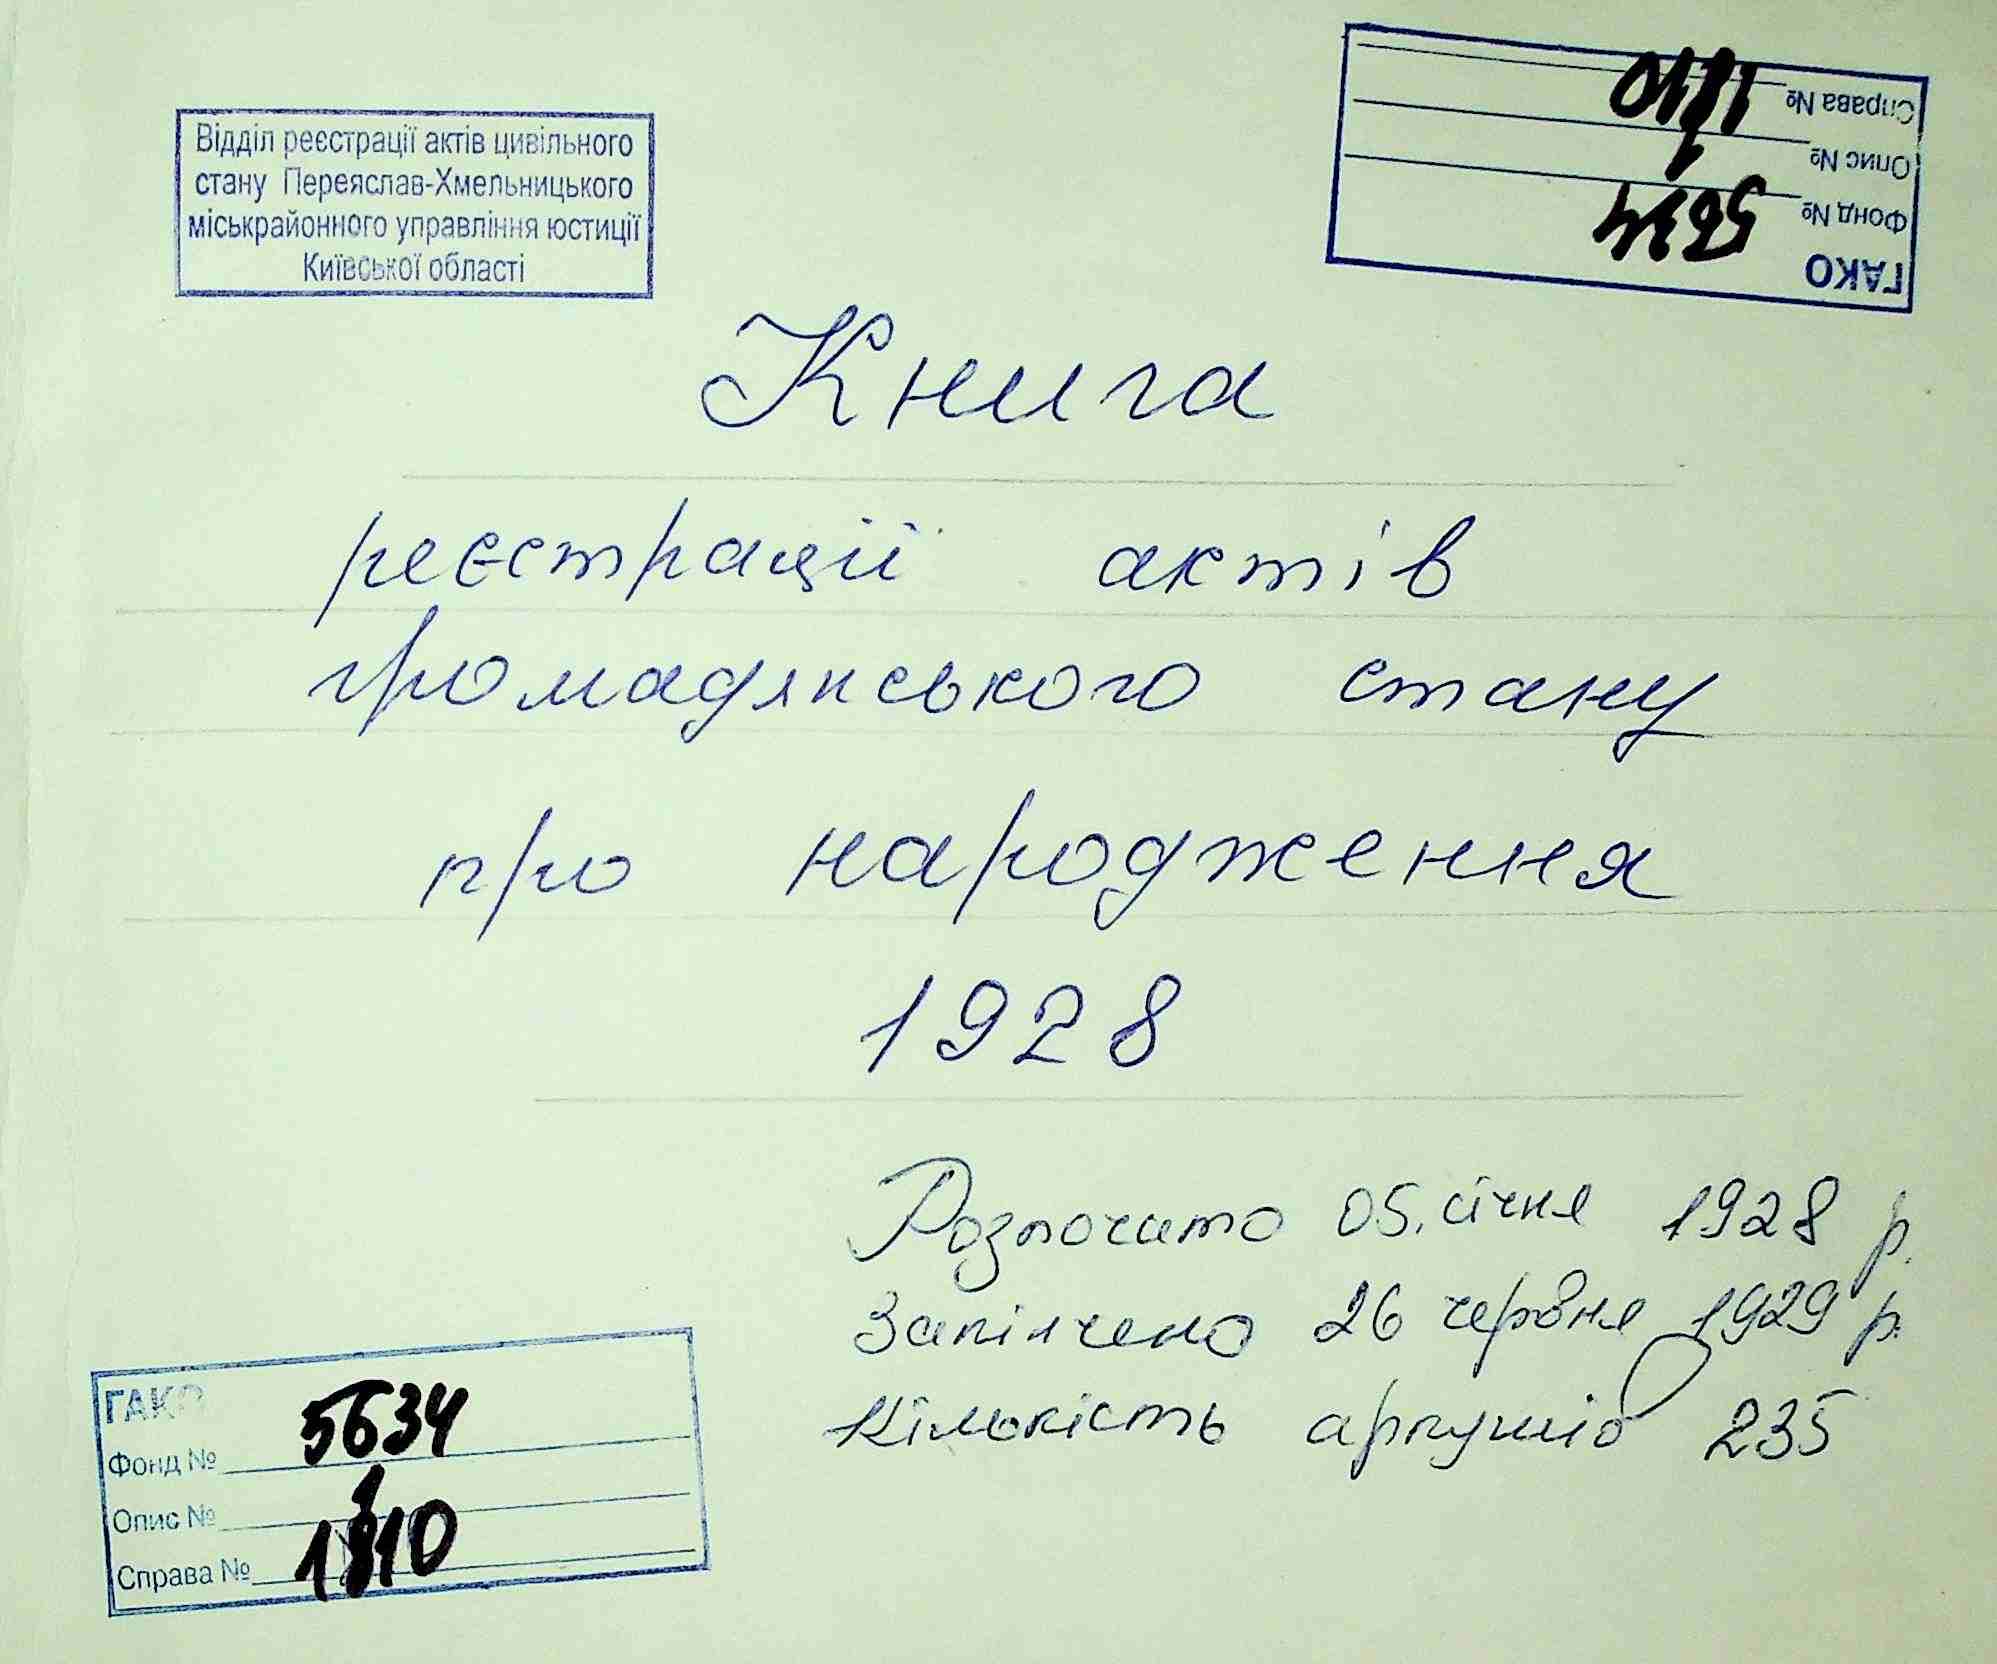 Відділ реєстрації актів цивільного
стану Переяслав-Хмельницького
міськрайонного управління юстиції
Київської області
ГАКО
Фонд № 5634
Опис № 1
Справа № 1810
Книга
реєстрації актів
громадянського стану
про народження
1928
Розпочато 05. січня 1928 р.
Закінчено 26 червня 1929 р.
Кількість аркушів 235
ГАКО
Фонд № 5634
Опис № 1
Справа № 1810